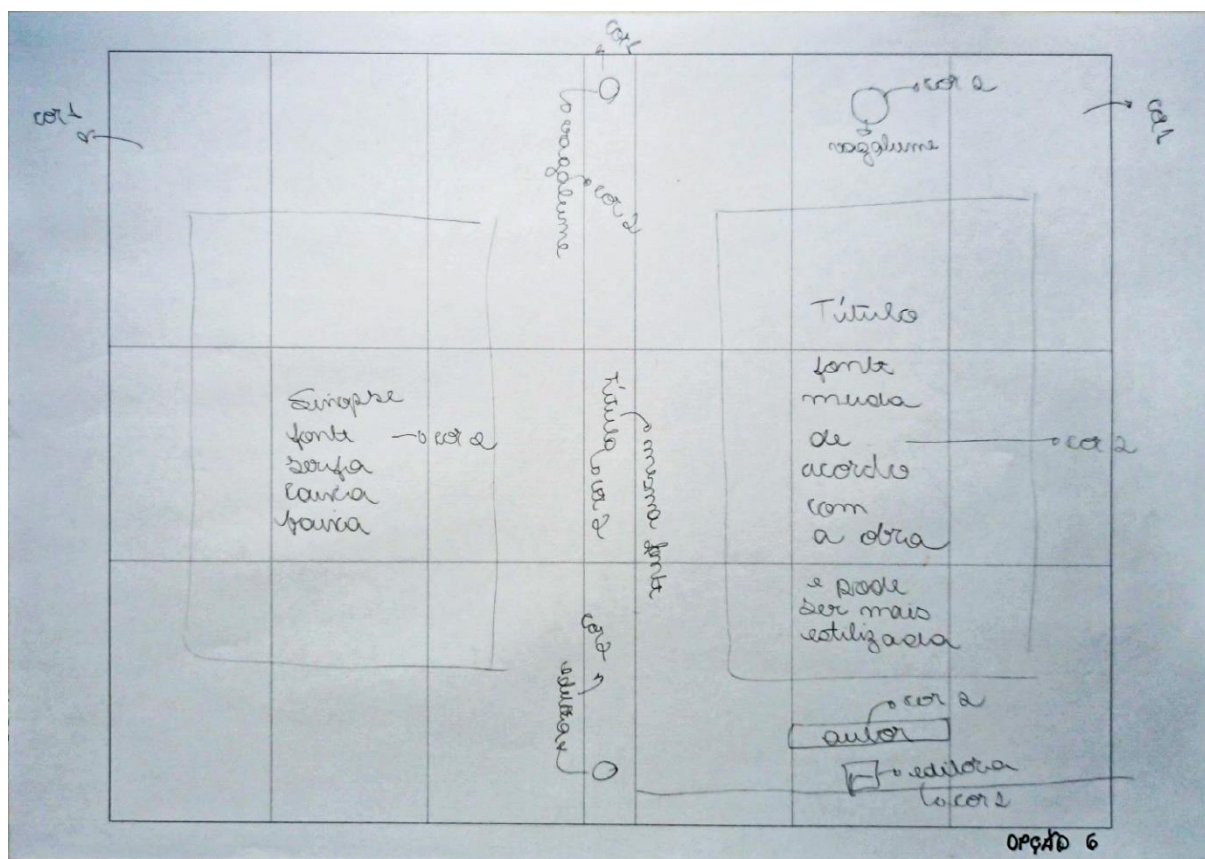 cor 1
cor 1
vagalume
cor 2
cor 2
vagalume
cor 1
Sinopse
fonte
serifa
caixa
baixa
cor 2
Título
cor 2
mesma fonte
cor 2
editora
Título
fonte
muda
de
acordo
com
a obra
e pode
ser mais
estilizada
cor 2
cor 2
autor
editora
cor 2
OPÇÃO 6